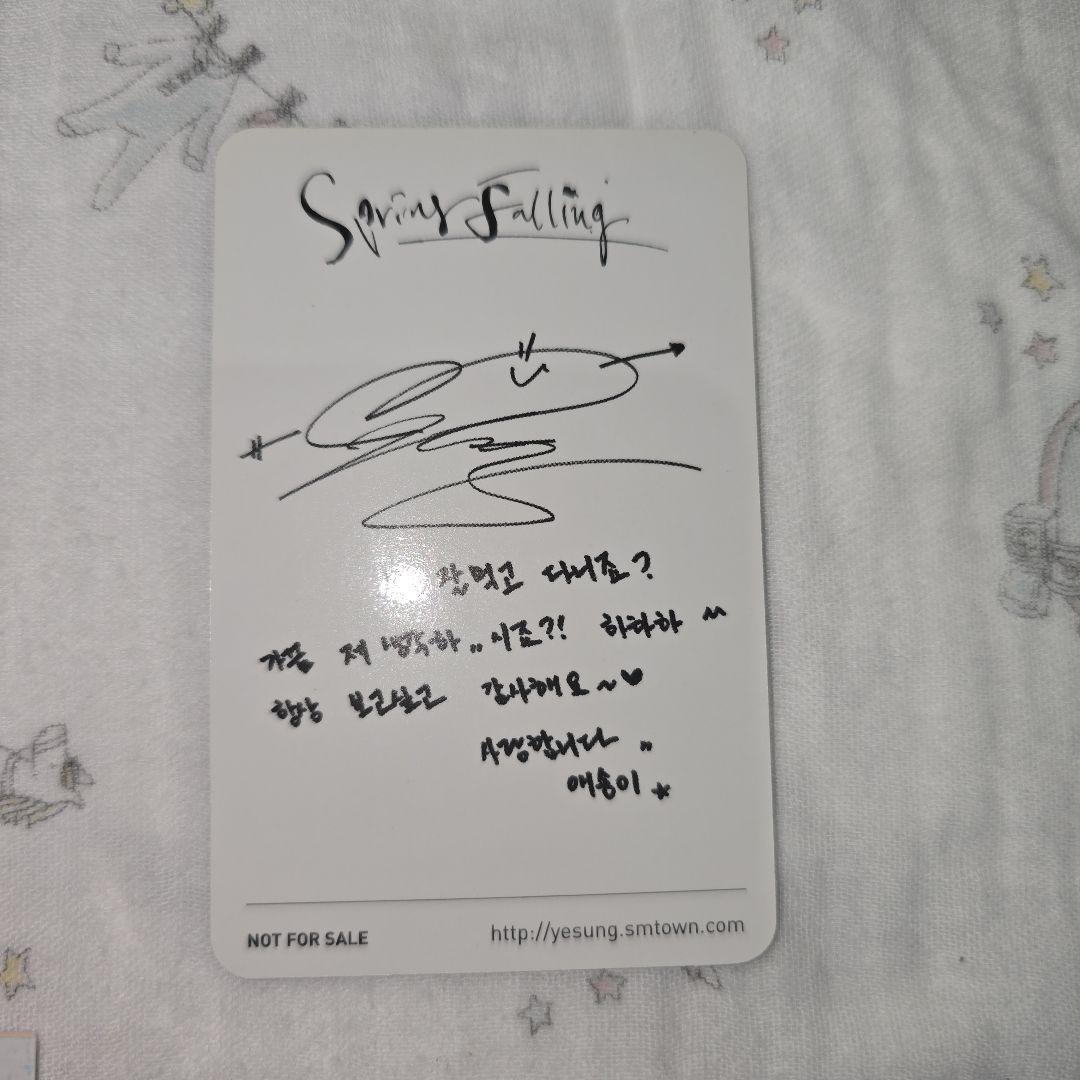 Spring Falling
잘 먹고 다니죠?
가끔 저 생각하,,시죠?! 하하하 ^^
항상 보고싶고 감사해요~♥
사랑합니다 ,,
예송이 ★
NOT FOR SALE
http://yesung.smtown.com